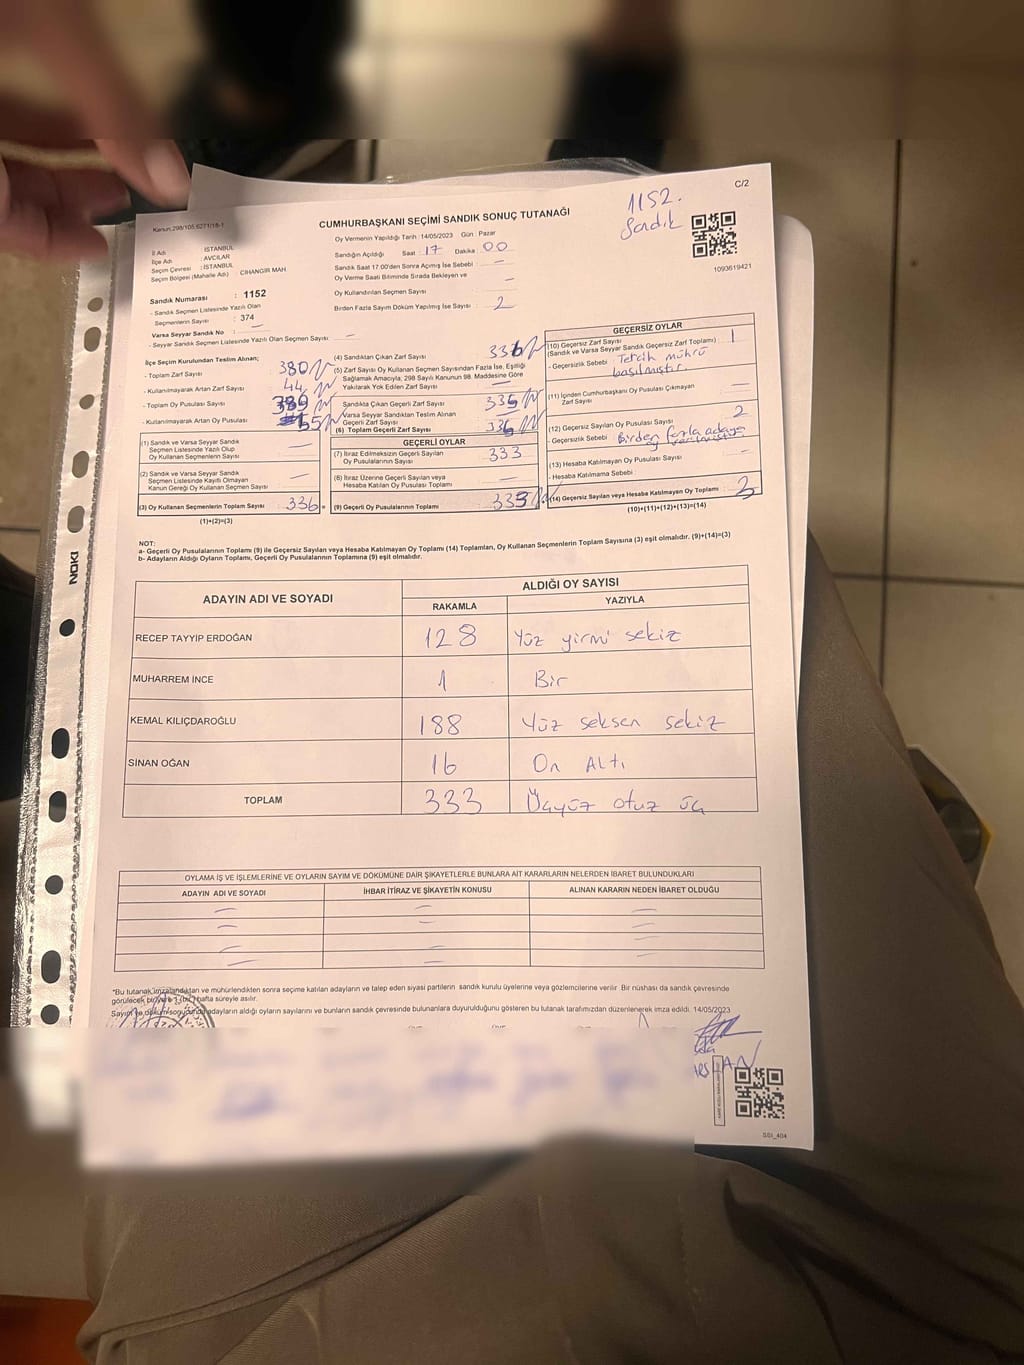 C/2
1152.
Sandık
Kanun:298/105,6271/18-1
CUMHURBAŞKANI SEÇİMİ SANDIK SONUÇ TUTANAĞI
1093619421
İl Adı : İSTANBUL
İlçe Adı : AVCILAR
Seçim Çevresi : İSTANBUL
Seçim Bölgesi (Mahalle Adı) CIHANGIR MAH.
Sandık Numarası : 1152
- Sandık Seçmen Listesinde Yazılı Olan
Seçmenlerin Sayısı : 374
Varsa Seyyar Sandık No : —
- Seyyar Sandık Seçmen Listesinde Yazılı Olan Seçmen Sayısı : —
Oy Vermenin Yapıldığı Tarih : 14/05/2023 Gün : Pazar
Sandığın Açıldığı Saat : 17 Dakika : 00
Sandık Saat 17.00'den Sonra Açılmış İse Sebebi : —
Oy Verme Saati Bitiminde Sırada Bekleyen ve
Oy Kullandırılan Seçmen Sayısı : —
Birden Fazla Sayım Döküm Yapılmış İse Sayısı : 2
İlçe Seçim Kurulundan Teslim Alınan;
- Toplam Zarf Sayısı : 380
- Kullanılmayarak Artan Zarf Sayısı : 44
- Toplam Oy Pusulası Sayısı
- Kullanılmayarak Artan Oy Pusulası
(1) Sandık ve Varsa Seyyar Sandık
Seçmen Listesinde Yazılı Olup
Oy Kullanan Seçmenlerin Sayısı : —
(2) Sandık ve Varsa Seyyar Sandık
Seçmen Listesinde Kayıtlı Olmayan
Kanun Gereği Oy Kullanan Seçmen Sayısı : —
(3) Oy Kullanan Seçmenlerin Toplam Sayısı : 336
(1)+(2)=(3)
(4) Sandıktan Çıkan Zarf Sayısı : 336
(5) Zarf Sayısı Oy Kullanan Seçmen Sayısından Fazla İse, Eşitliği
Sağlamak Amacıyla, 298 Sayılı Kanunun 98. Maddesine Göre
Yakılarak Yok Edilen Zarf Sayısı : —
Sandıkta Çıkan Geçerli Zarf Sayısı : 335
Varsa Seyyar Sandıktan Teslim Alınan
Geçerli Zarf Sayısı
(6) Toplam Geçerli Zarf Sayısı : 336
GEÇERLİ OYLAR
(7) İtiraz Edilmeksizin Geçerli Sayılan
Oy Pusulalarının Sayısı : 333
(8) İtiraz Üzerine Geçerli Sayılan veya
Hesaba Katılan Oy Pusulası Toplamı : —
(9) Geçerli Oy Pusulalarının Toplamı : 333
GEÇERSİZ OYLAR
(10) Geçersiz Zarf Sayısı : 1
(Sandık ve Varsa Seyyar Sandık Geçersiz Zarf Toplamı)
- Geçersizlik Sebebi : Tercih mührü
basılmıştır.
(11) İçinden Cumhurbaşkanı Oy Pusulası Çıkmayan
Zarf Sayısı : —
(12) Geçersiz Sayılan Oy Pusulası Sayısı : 2
- Geçersizlik Sebebi : Birden fazla adaya
(13) Hesaba Katılmayan Oy Pusulası Sayısı : —
- Hesaba Katılmama Sebebi :
(14) Geçersiz Sayılan veya Hesaba Katılmayan Oy Toplamı : 3
(10)+(11)+(12)+(13)=(14)
NOT:
a- Geçerli Oy Pusulalarının Toplamı (9) ile Geçersiz Sayılan veya Hesaba Katılmayan Oy Toplamı (14) Toplamları, Oy Kullanan Seçmenlerin Toplam Sayısına (3) eşit olmalıdır. (9)+(14)=(3)
b- Adayların Aldığı Oyların Toplamı, Geçerli Oy Pusulalarının Toplamına (9) eşit olmalıdır.
ADAYIN ADI VE SOYADI
ALDIĞI OY SAYISI
RAKAMLA YAZIYLA
RECEP TAYYİP ERDOĞAN 128 Yüz yirmi sekiz
MUHARREM İNCE 1 Bir
KEMAL KILIÇDAROĞLU 188 Yüz seksen sekiz
SİNAN OĞAN 16 On Altı
TOPLAM 333 Üçyüz otuz üç
OYLAMA İŞ VE İŞLEMLERİNE VE OYLARIN SAYIM VE DÖKÜMÜNE DAİR ŞİKAYETLERLE BUNLARA AİT KARARLARIN NELERDEN İBARET BULUNDUKLARI
ADAYIN ADI VE SOYADI İHBAR İTİRAZ VE ŞİKAYETİN KONUSU ALINAN KARARIN NEDEN İBARET OLDUĞU
*Bu tutanak,imzalandıktan ve mühürlendikten sonra seçime katılan adayların ve talep eden siyasi partilerin sandık kurulu üyelerine veya gözlemcilerine verilir Bir nüshası da sandık çevresinde
görülecek bir yere 1 (bir) hafta süreyle asılır.
Sayım ve döküm sonucunda adayların aldığı oyların sayılarını ve bunların sandık çevresinde bulunanlara duyurulduğunu gösteren bu tutanak tarafımızdan düzenlenerek imza edildi. 14/05/2023
SSI_404
NOKI